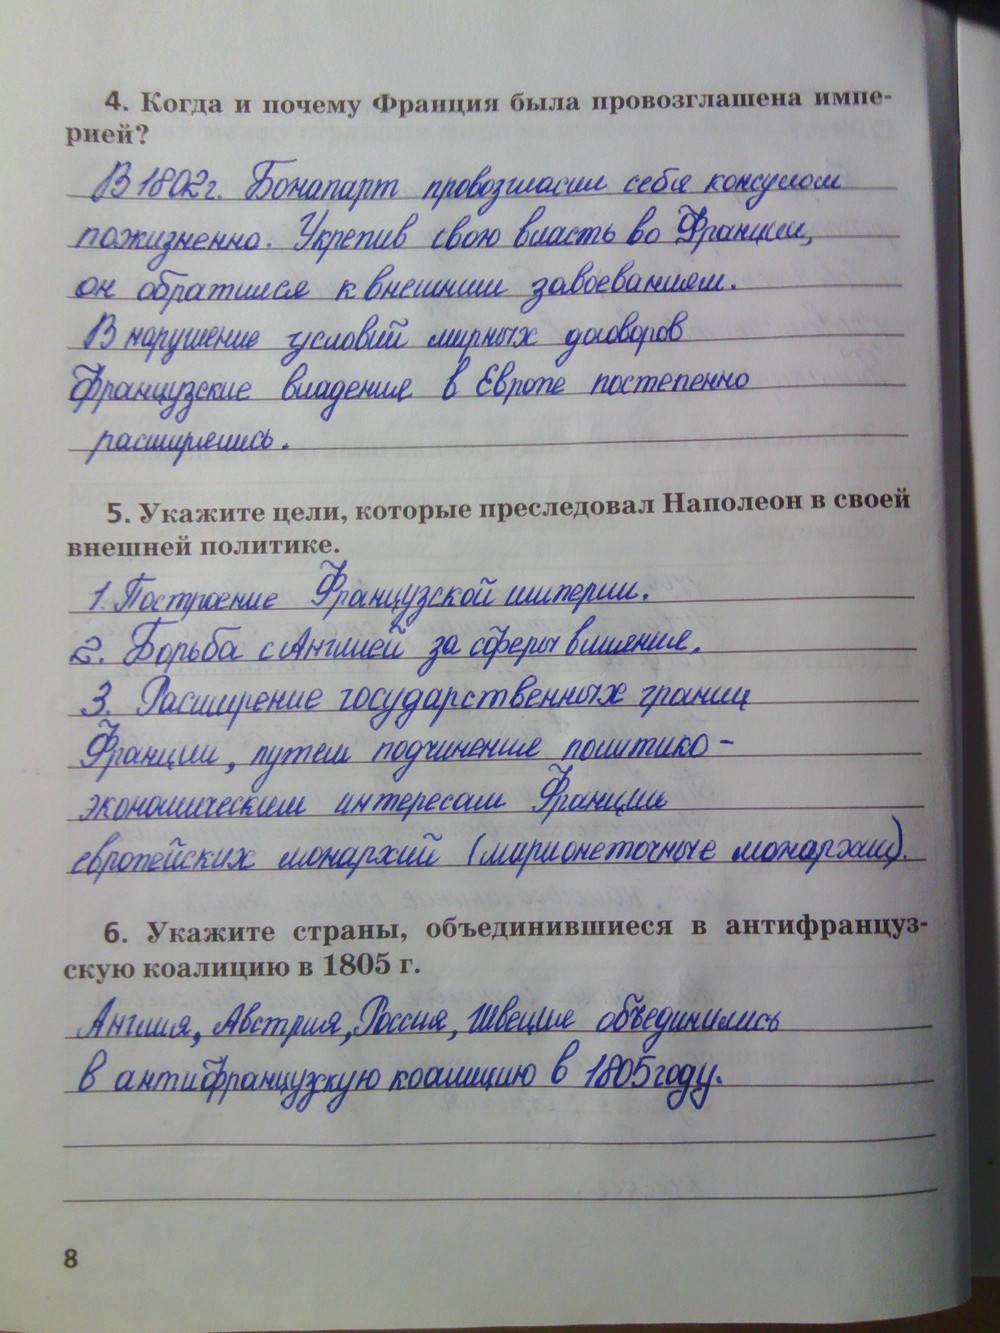 4. Когда и почему Франция была провозглашена импе-
рией?
В 1802г. Бонапарт провозгласил себя консулом
пожизненно. Укрепив свою власть во Франции,
он обратился к внешним завоеваниям.
В нарушение условий мирных договоров
французские владения в Европе постепенно
расширялись.
5. Укажите цели, которые преследовал Наполеон в своей
внешней политике.
1. Построение Французской империи.
2. Борьба с Англией за сферы влияние.
3. Расширение государственных границ
Франции, путем подчинение политико-
экономическим интересам Франции
европейских монархий (марионеточные монархии).
6. Укажите страны, объединившиеся в антифранцуз-
скую коалицию в 1805 г.
Англия, Австрия, Россия, Швеция объединились
в антифранцузскую коалицию в 1805 году.
8